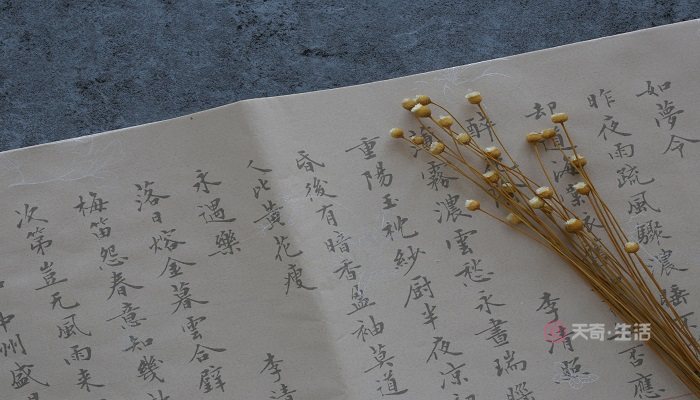 如夢令
昨夜雨疏風驟濃睡
却道海棠依
否應
醉
李清照
薄霧濃雲愁永晝瑞腦
重陽玉枕紗厨半夜涼初
昏後有暗香盈袖莫道
人比黃花瘦
永遇樂
李清
落日熔金暮雲合璧
梅笛怨春意知幾
次第豈无風雨来
中州盛
天奇·生活